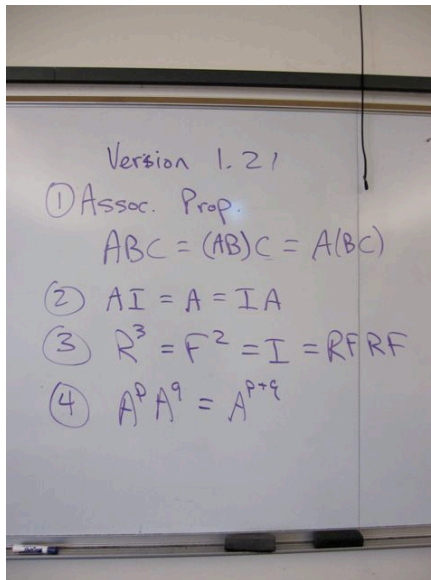 Version 1.21
① Assoc. Prop.
ABC = (AB)C = A(BC)
② AI = A = IA
③ R³ = F² = I = RFRF
④ AᵖA^q = A^{p+q}